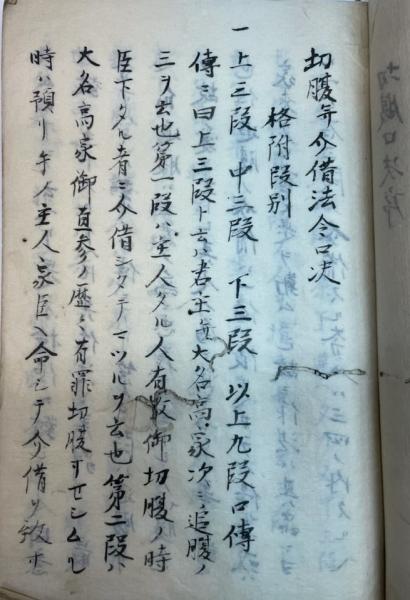 切腹口決序
切腹并介借法令口决
格附段別
一上三段 中三段 下三段 以上九段口傳
傳ニ曰上三段ト云ハ君主并大名高家次ニ追腹ノ
三ヲ云也第一段ハ主人タル人有故御切腹ノ時
臣下タル者ニ介借シタテマツルヲ云也第二段ハ
大名高家御直参ノ歴々有罪切腹サセシムル
時ハ預リ主人家臣ヘ命シテ介借サ